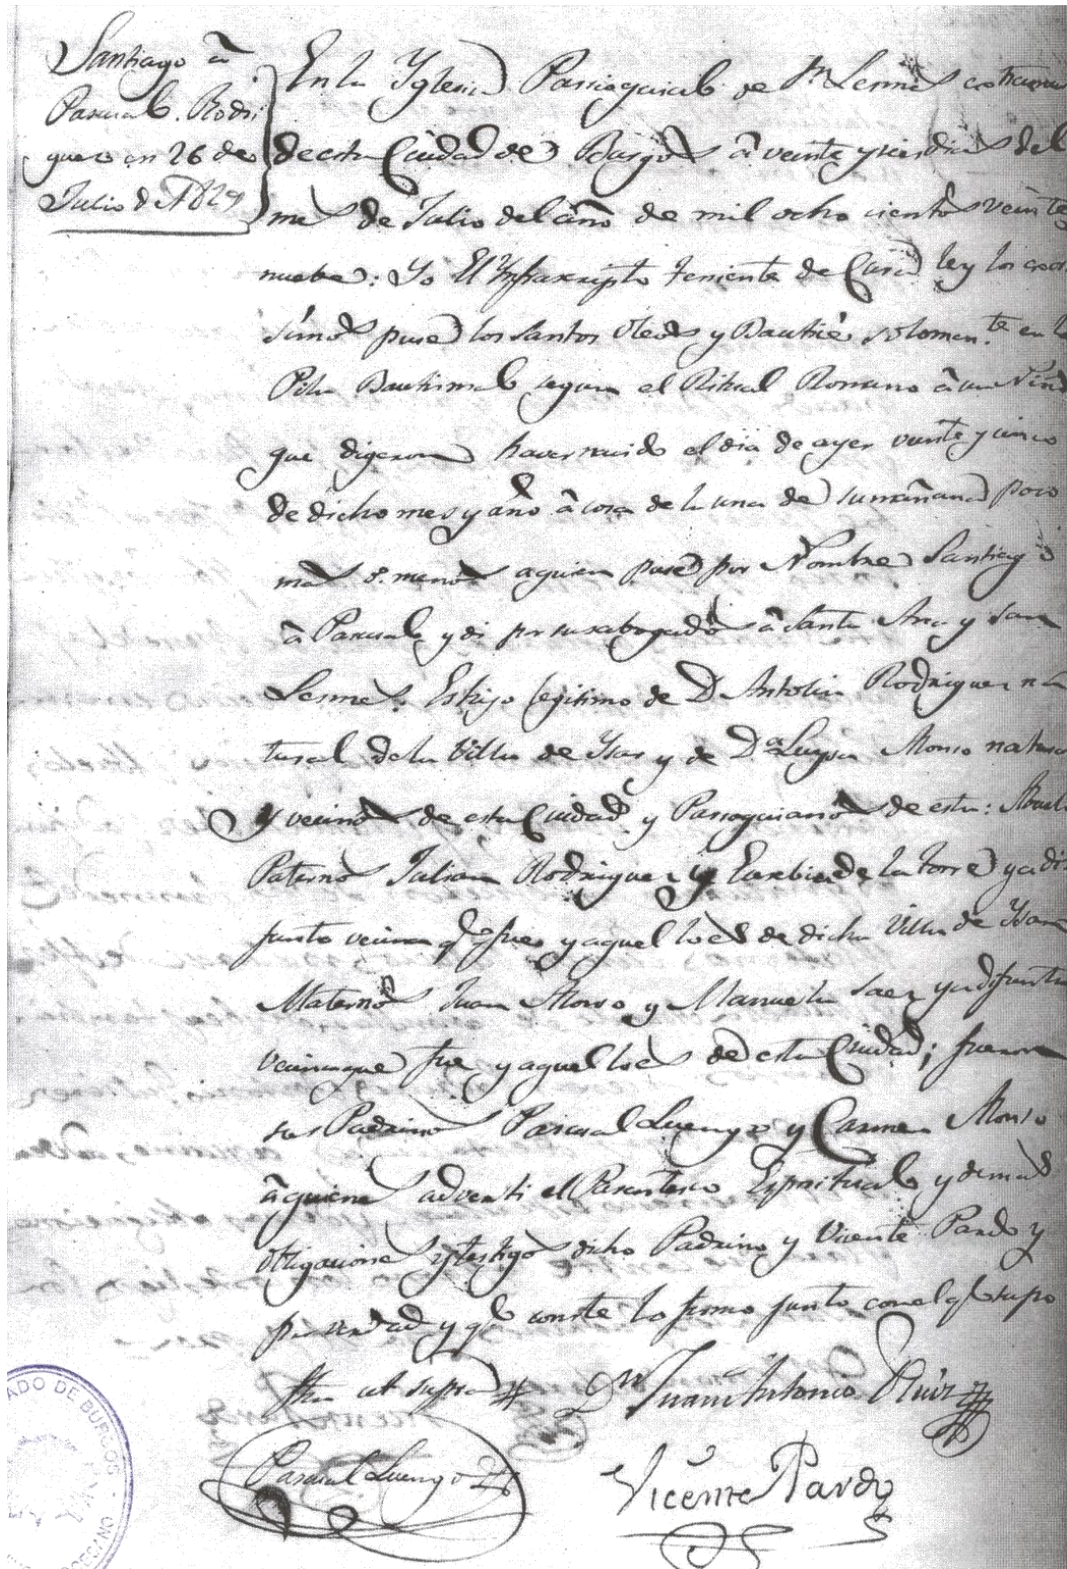 Santiago a
Pascual. Rodri
guez en 26 de
Julio de 1829
En la Yglesia Parroquial de Sn Lesmes extramu
de esta Ciudad de Burgos à veinte y seis dias del
mes de Julio del año de mil ocho cientos veinte
nuebe: Yo El Ynfraescripto teniente de Cura ley los exor
sismos puse los santos Oleos y Bauticé solemn.te en la
Pila Bautismal segun el Ritual Romano à un Niño
que digeron haver nacido el dia de ayer veinte y cinco
de dicho mes y año à cosa de la una de su mañana poco
mas o menos a quien puse por Nombre Santiago
à Pascual y di por sus abogados à Santa Ana y San
Lesmes. Es hijo legitimo de Dn Antolin Rodriguez na
tural de la Villa de Ysar y de Da Luysa Alonso natural
y vecinos de esta Ciudad y Parroquianos de esta: Abuel
Paternos Julian Rodriguez y Eusebia de la Torre ya di
funta vecina q.e fue y aquel lo es de dicha Villa de Ysar
Maternos Juan Alonso y Manuela Saez ya difunta
vecina que fue y aquel lo es de esta Ciudad; fueron
sus Padrinos Pascual Luengo y Carmen Alonso
à quienes adverti el Parentesco Espiritual y demas
obligaciones y testigos dicho Padrino y Vicente Pardo y
pr verdad y q.e conste lo firmo junto con el q.e supo
fha ut supra
Dn Juan Antonio Ruiz
Pascual Luengo
Vicente Pardo
ADO DE BURGOS